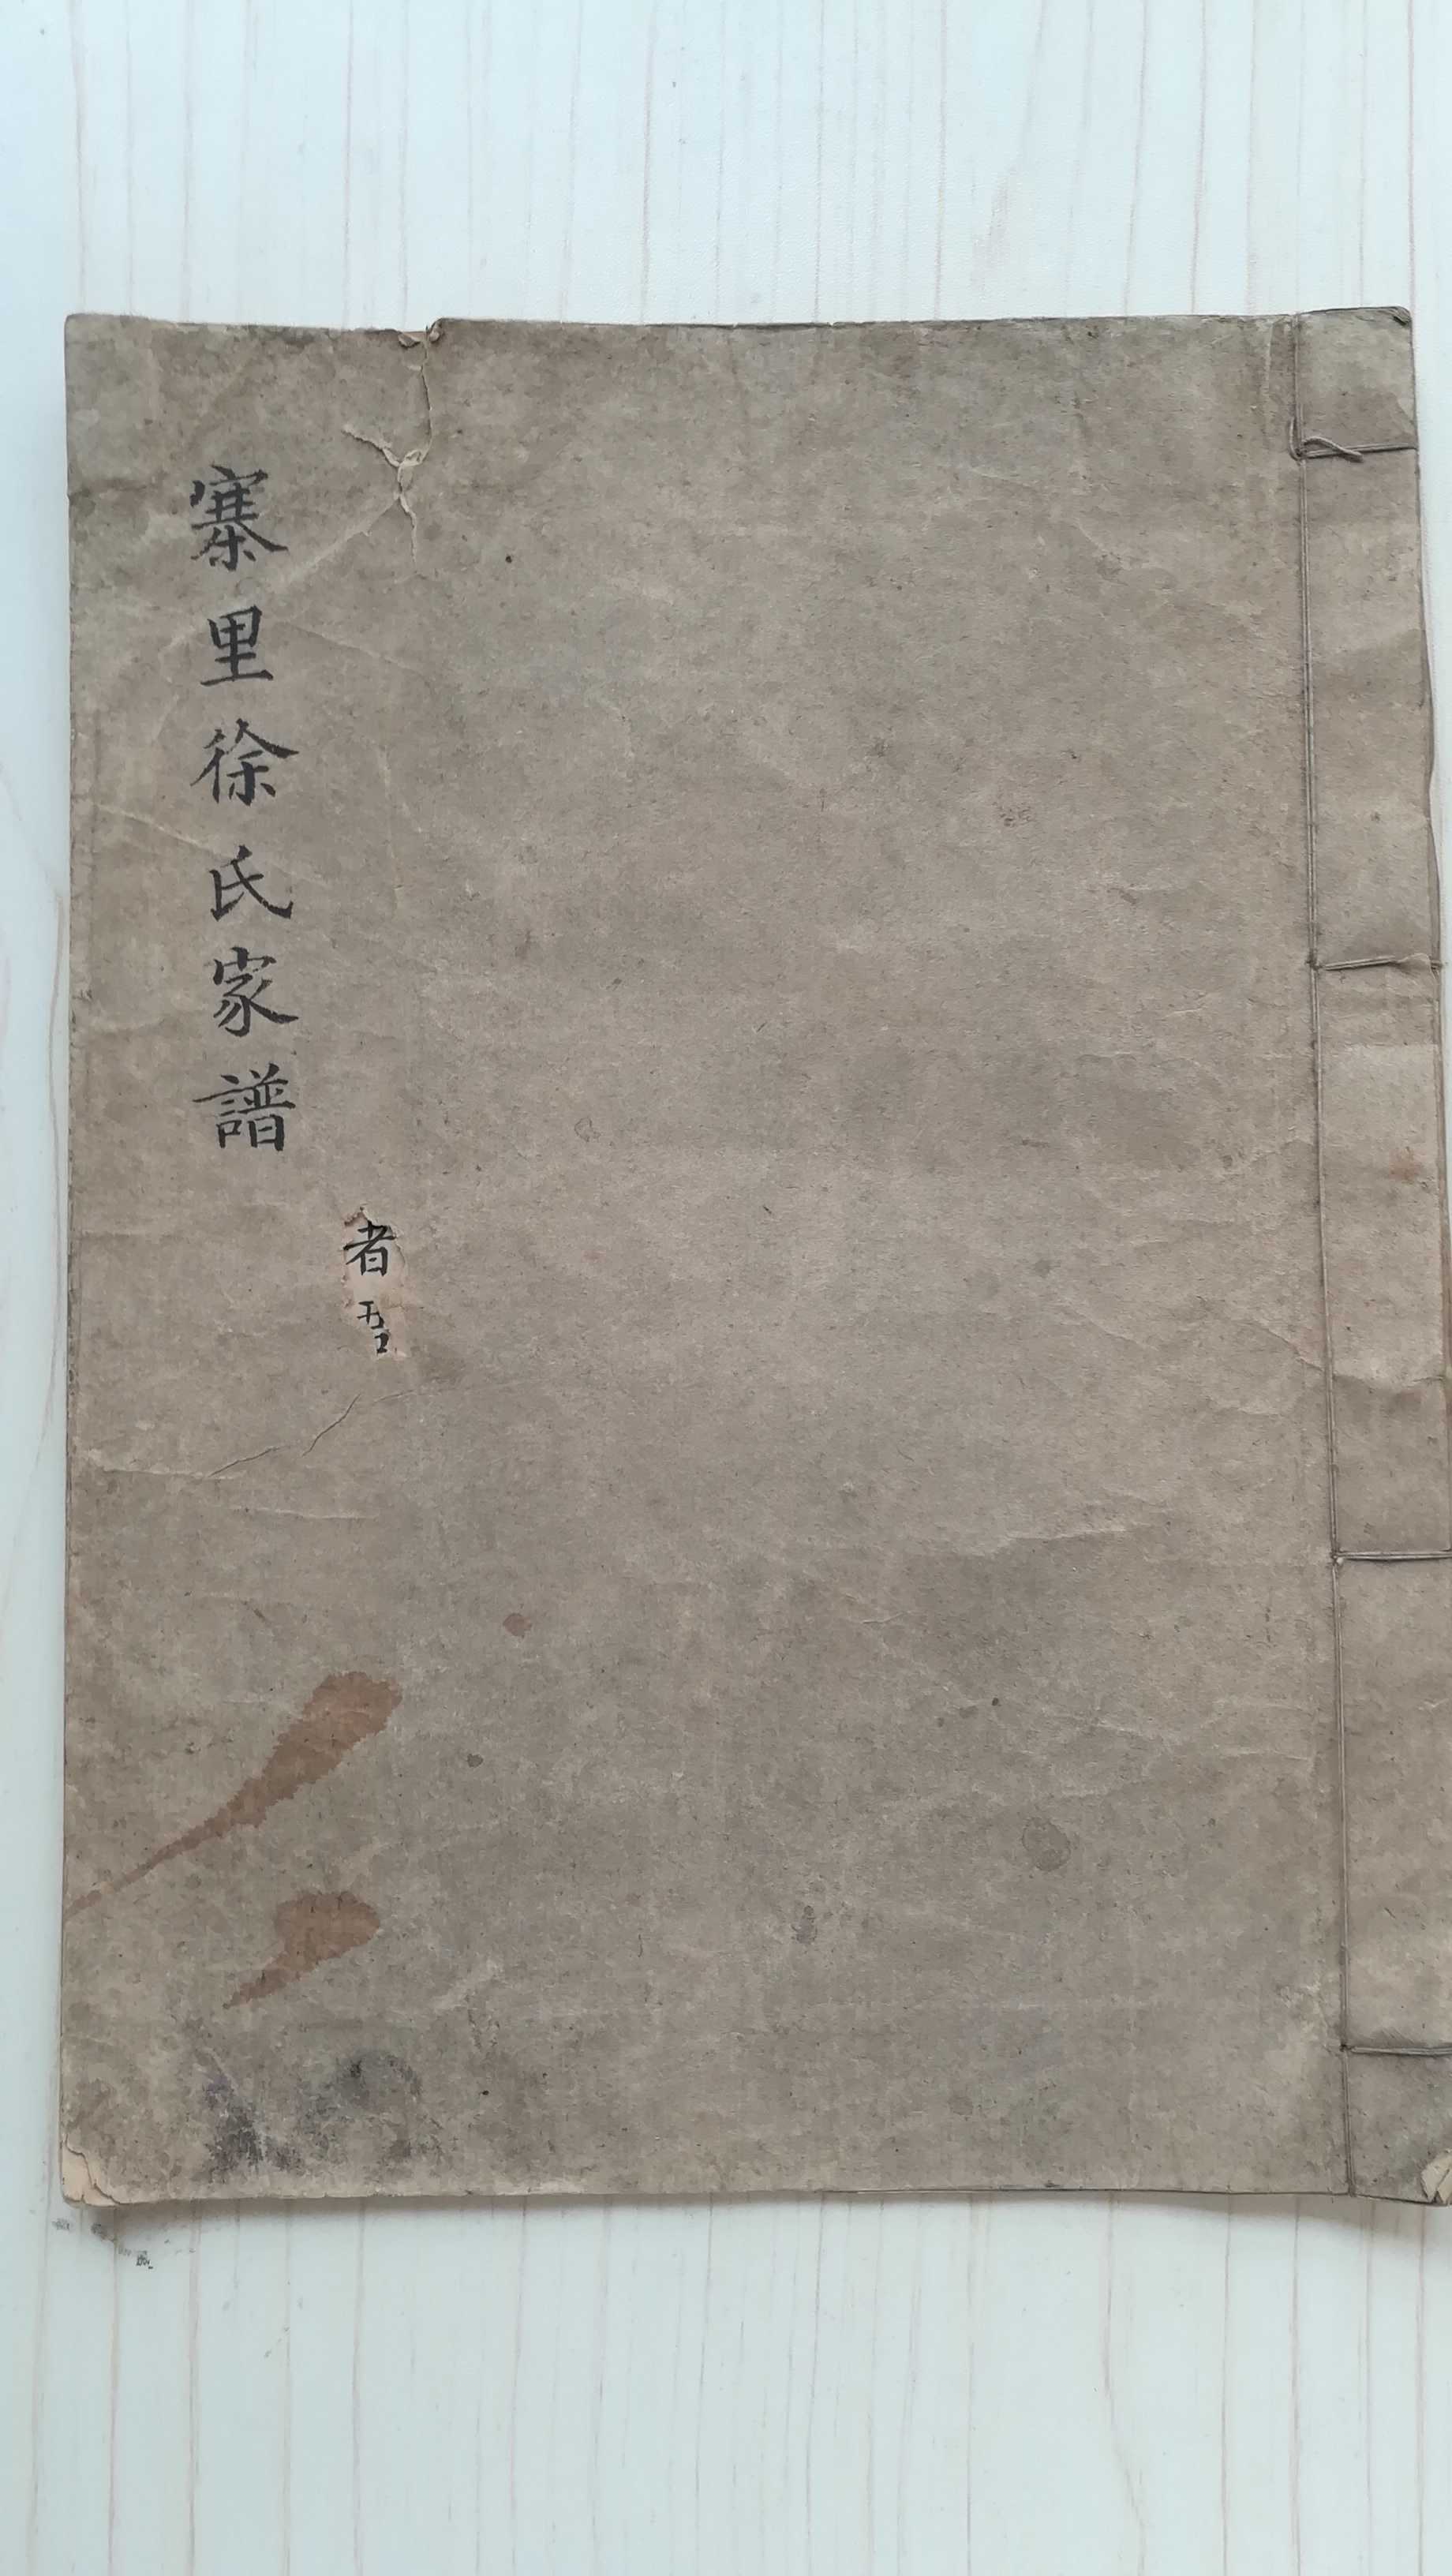 寨里徐氏家譜
者